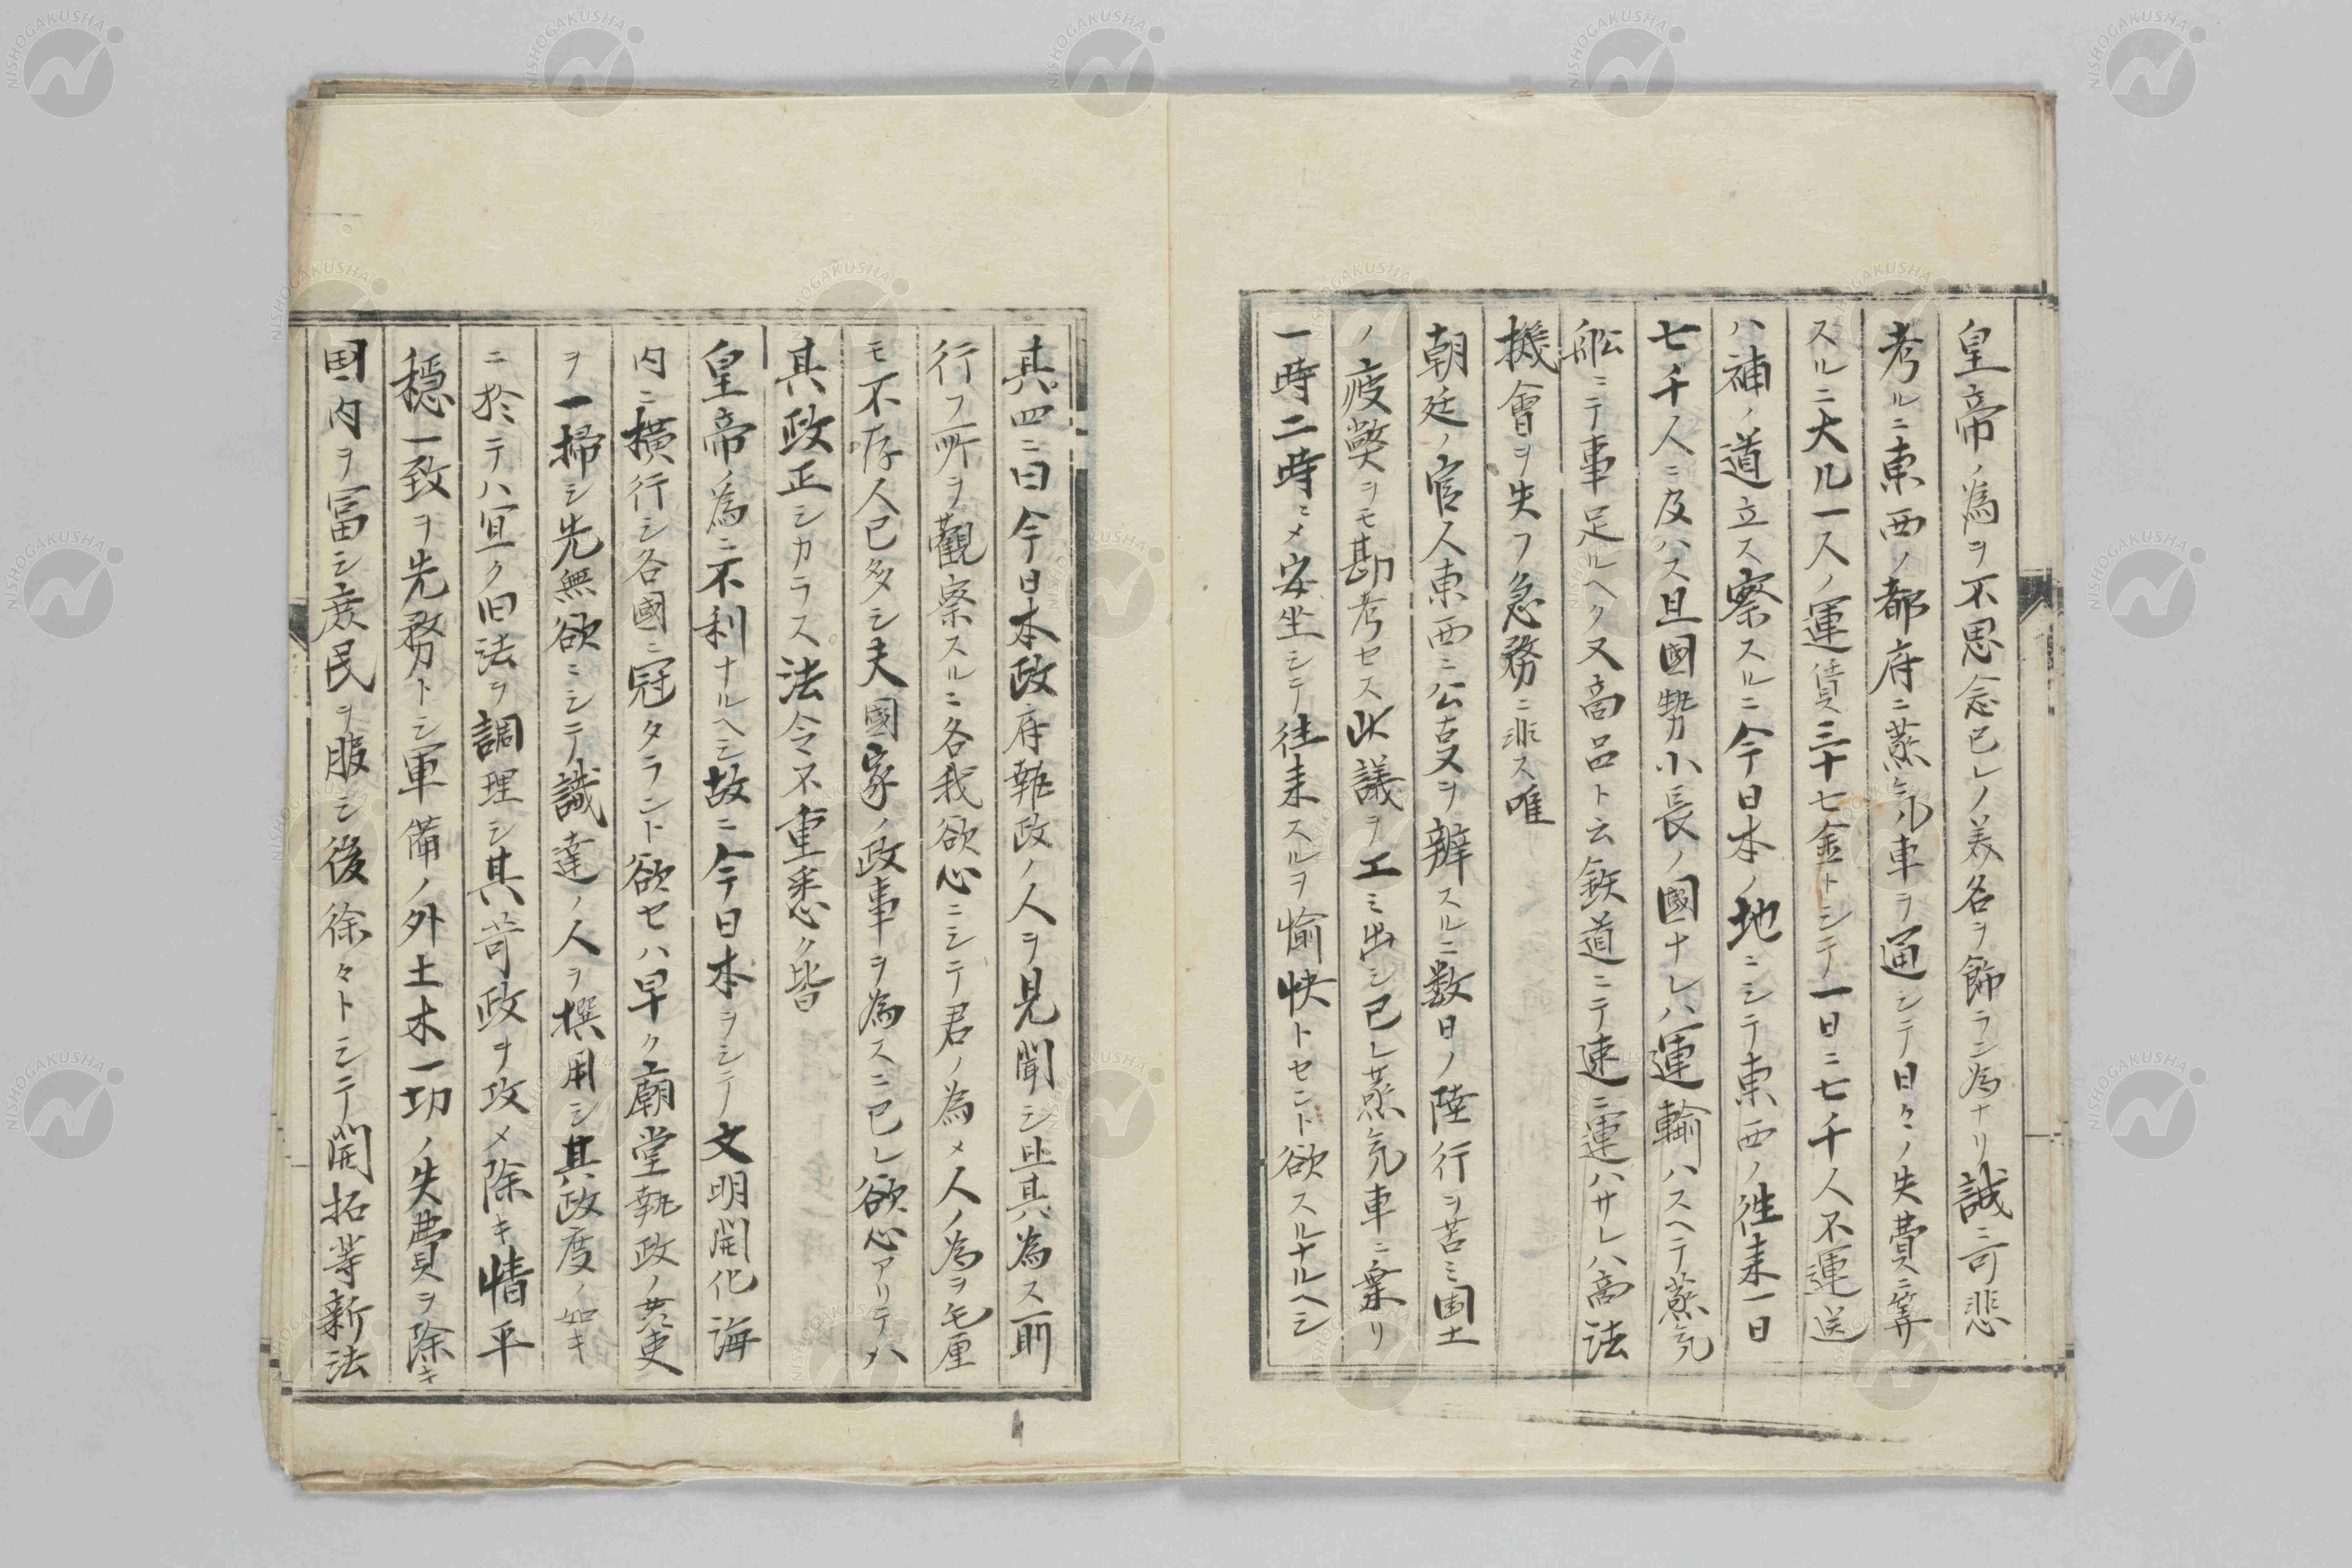 皇帝ノ為ヲ不思念已レノ美名ヲ飾ラン為ナリ誠ニ可悲
考ルニ東西ノ都府ニ蒸気車ヲ通シテ日々ノ失費ニ算
スルニ大凡一人ノ運賃三十七金トシテ一日ニ七千人不運送
ハ補ノ道立ス察スルニ今日本ノ地ニシテ東西ノ徃来一日
七千人ニ及ハス且國勢小長ノ國ナレハ運輸ハスヘテ蒸気
舩ニテ事足ルヘク又商品ト云鉄道ニテ速ニ運ハサレハ商法
機會ヲ失フ急務ニ非ス唯
朝廷ノ官人東西ニ公吉又ヲ辨スルニ数日ノ陸行ヲ苦ミ國土
ノ疲弊ヲモ勘考セス此議ヲ工ミ出シ已レ蒸気車ニ乗リ
一時二時ニメ安坐シテ徃来スルヲ愉快トセント欲スルナルヘシ
其四ニ曰今日本政府執政ノ人ヲ見聞シ且其為ス所
行フ所ヲ觀察スルニ各我欲心ニシテ君ノ為メ人ノ為ヲ毛厘
モ不存人已多シ夫國家ノ政事ヲ為スニ已レ欲心アリテハ
其政正シカラス法令不重悉ク皆
皇帝ノ為ニ不利ナルヘシ故ニ今日本ヲシテ文明開化海
内ニ横行シ各國ニ冠タラント欲セハ早ク廟堂執政ノ共吏
ヲ一掃シ先無欲ニシテ識達ノ人ヲ撰用シ其政度ノ如キ
ニ於テハ宜ク旧法ヲ調理シ其苛政ヲ攻メ除キ情平
穏一致ヲ先務トシ軍備ノ外土木一切ノ失費ヲ除キ
国内ヲ冨シ庶民ヲ服シ後徐々トシテ開拓等新法
NISHOGAKUSHA